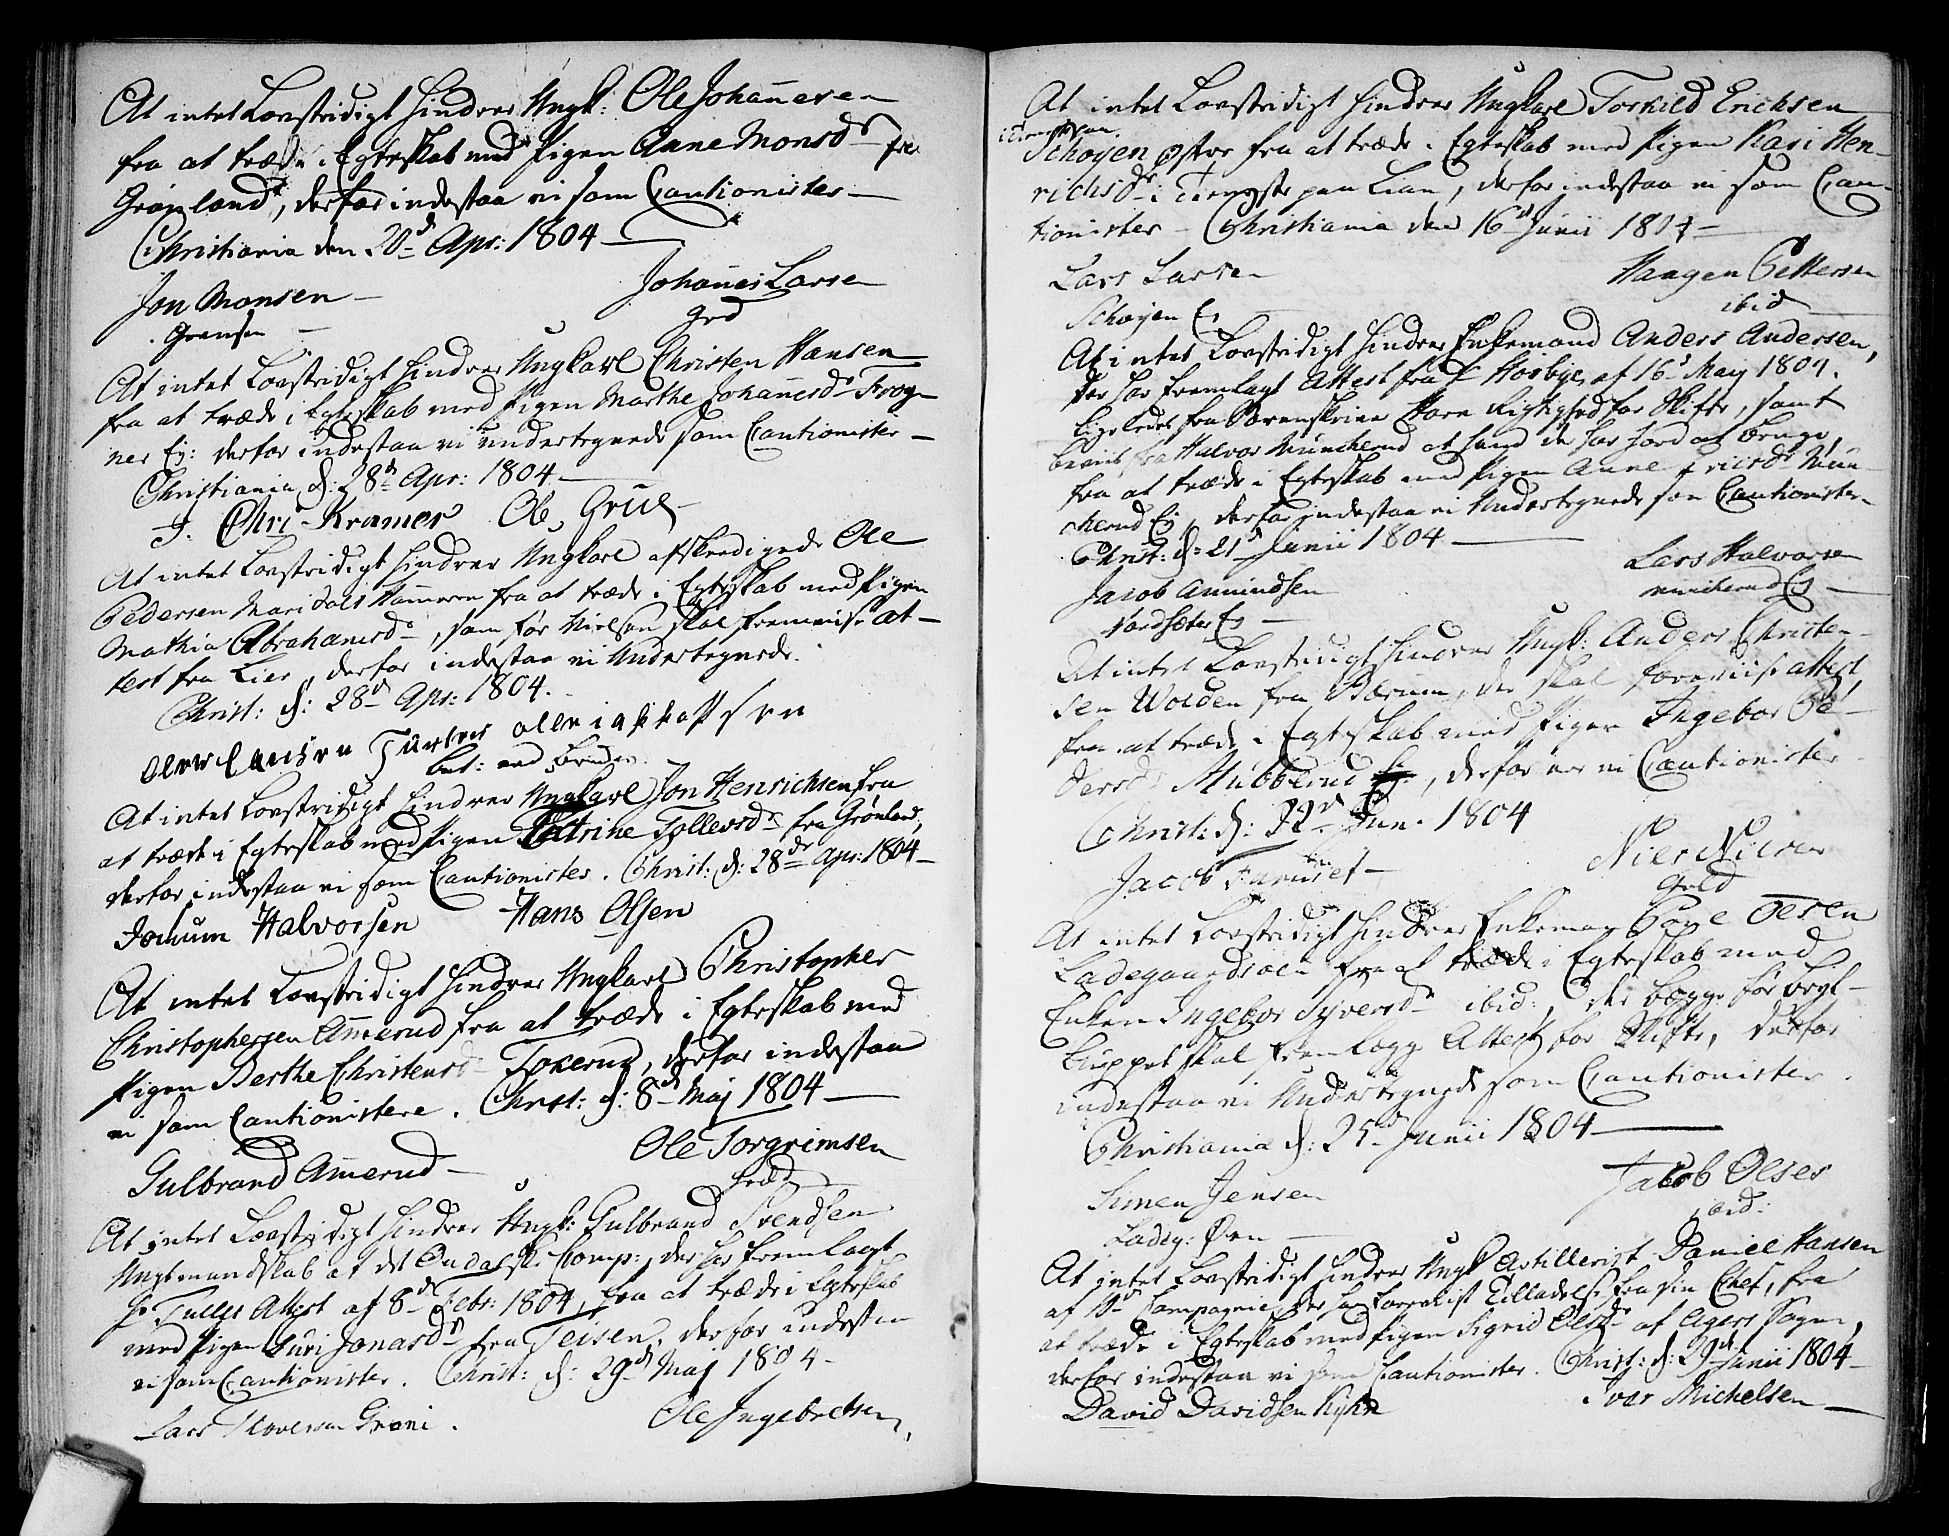 At intet Lovstridigt hindrer Ungk: Ole Johannesen
fra at træde i Egteskab med Pigen Anne Monsd fra
Grønland, derfor indestaa vi som Cautionister
Christiania den 20d Apr: 1804
Jon Monsen Johannes Larsen
Grensen Grd
At intet Lovstridigt hindrer Ungkarl Christen Hansen
fra at træde i Egteskab med Pigen Marthe Johannesd Frog-
ner Ej: derfor indestaa vi undertegnede som Cautionister
Christiania d: 28d Apr: 1804
J. Chri-Kramer Ol. Grue
At intet Lovstridigt hindrer Ungkarl afskedigede Ole
Pedersen Maridals Hammeren fra at træde i Egteskab med Pigen
Mathia Abrahamsd, som før Vielsen skal fremviise At-
test fra Lier, derfor indestaa vi Undertegnede.
Christ: d: 28d Apr: 1804.
At intet Lovstridigt hindrer Ungkarl Jon Henrichsen fra
at træde i Egteskab med Pigen Cattrine Tollevsd fra Grønland,
derfor indestaa vi som Cautionister. Christ: d: 28de Apr: 1804
Jochum Halvorsen Hans Olsen
At intet Lovstridigt hindrer Ungkarl Christopher
Christophersen Ammerud fra at træde i Egteskab med
Pigen Berthe Christensd Tokerud, derfor indestaa
vi som Cautionistere. Christ: d: 8d Maj 1804
Gulbrand Ammerud Ole Torgrimsen
At intet Lovstridigt hindrer Ungk: Gulbrand Svendsen
Ungt mandskab af det Oudalske Comp: der har fremlagt
Hr Tulles Attest af 8d Febr: 1804, fra at træde i Egteskab
med Pigen Guri Jonasd fra Teisen, derfor indestaa
vi som Cautionister. Christ: d: 29d Maj 1804
Lars Groni. Ole Ingebretsen,
At intet Lovstridigt hindrer Ungkarl Torkild Erichsen
Schøyen østre fra at træde i Egteskab med Pigen Kari Hen-
richsd i Tieneste paa Lian, derfor indestaa vi som Cau-
tionister Christiania den 16d Junii 1804
Lars Larsen Haagen Pettersen
Schøyen Ej ibid
At intet Lovstridigt hindrer Enkemand Anders Andersen,
der har fremlagt Attest fra Høibye, af 16d Maj 1804.
ligeledes fra Sorenskriver Horn Rigtighed for Skifte, samt
beviis fra Halvor Munkerud at hand der har Jord at bruge,
fra at træde i Egteskab med Pigen Anne Mun-
kerud Ej, derfor indestaa vi Undertegnede som Cautionister
Christ: d: 21d Junii 1804
Jacob Amundsen Lars Halvorsen
Nordsæter Ej Munkerud Ej
At intet Lovstridigt hindrer Ungk: Anders Christen-
sen Wolden fra Bærum, der skal foreviise Attest,
fra at træde i Egteskab med Pigen Ingebor Pe-
dersd Mubberud Ej, derfor er vi Cautionister
Christ: d: 22d Jun. 1804
Jacob Furuset Niels Nielsen
At intet Lovstridigt hindrer Enkemand Povel Olsen
Ladegaardsøen fra at træde i Egteskab med
Enken Ingebor Syversd ibid:, der begge før Bryl-
luppet skal fremlægge Attest for Skifte, derfor
indestaa vi Undertegnede som Cautionister.
Christiania d: 25d Junii 1804
Simen Jensen Jacob Olsen
Ladeg: Øen ibid:
At intet Lovstridigt hindrer Ungk Artillerist Daniel Hansen
af Compagnie, der har foreviist Tilladelse fra sin Chef, fra
at træde i Egteskab med Pigen Sigrid Olsd af Agers Sogn,
derfor indestaa vi som Cautionister. Christ: d: 29d Junii 1804
David Davidsen Kyhn Iver Michelsen